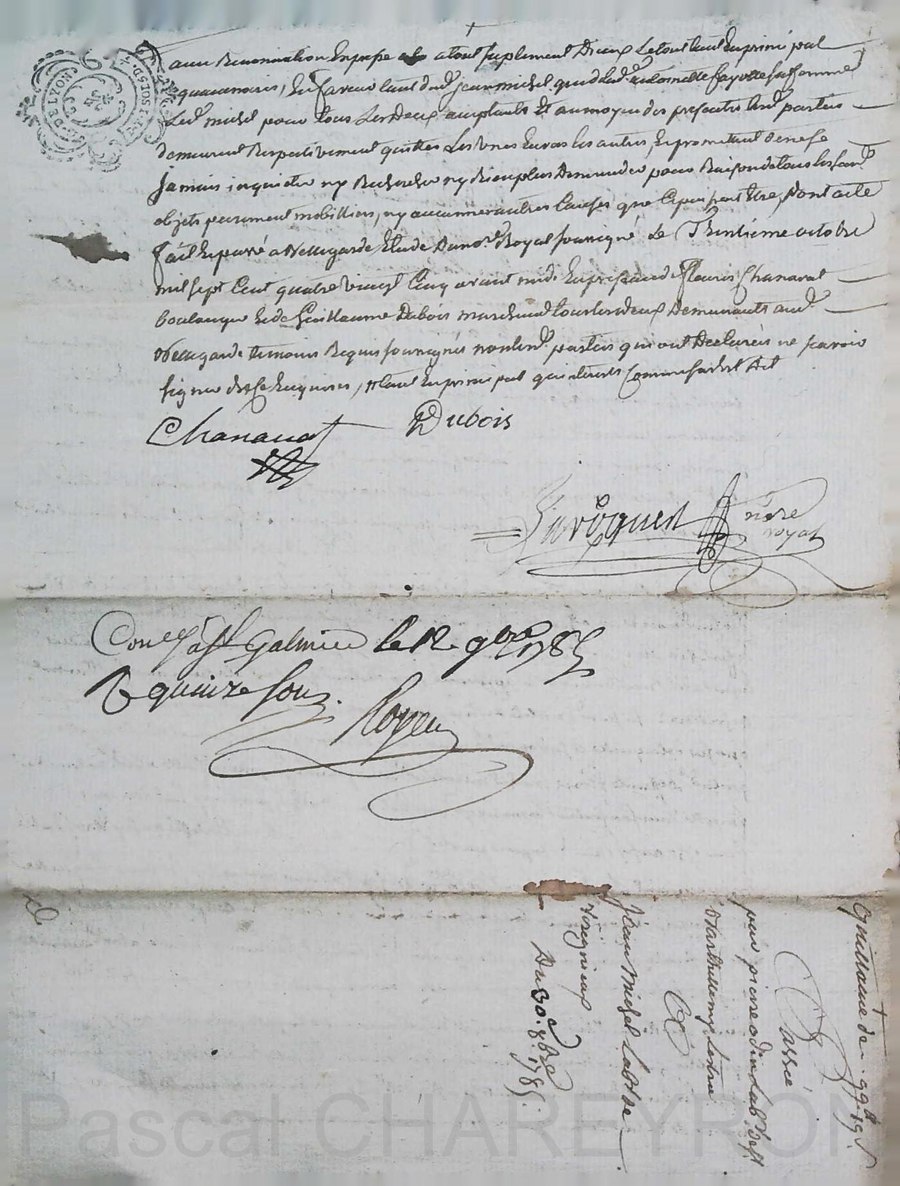 avec Renonciation Expresse a tout suplement Dieux Le tout tant En prin̄pal
En faveur tant dud. jean michel que de lad. antoinette fayolle sa femme
Led. michel pour tous Les deux acceptants Et au moyen des presentes Lesd. parties
demeurent Respectivement quittes Les Unes Envers les autres, En promettent de ne se
Jamais inquieter ny Rechercher ny Rien plus Demander pour Raison de tous lesd.
objets purement mobilliers, ny aucunes autres Causes que Ce puisse Etre, Dont acte
fait Et passé a Bellegarde Etude Du no.re Royal soussigné Le Trentieme octobre
mil sept Cent quatre vingt Cinq avant midi En presence de fleuris Chanavat
boulanger Et de Guillaume Dubois marchand tous les deux Demeurants aud.
Bellegarde temoins Requis soussignés non lesd. parties qui ont Declarées ne sçavoir
signer de ce Enquises,
Chanavat Dubois
n.re
royal
Con.lé a S.t Galmier le 12 9bre 1785
R quinze sous.
Royer
Quittance de 99# 19s
Passée
par pierre odin Lab.r
Barthelemy
A
Jean Michel Lab.r de
Du 30.e 8bre 1785.
Pascal CHAREYRON